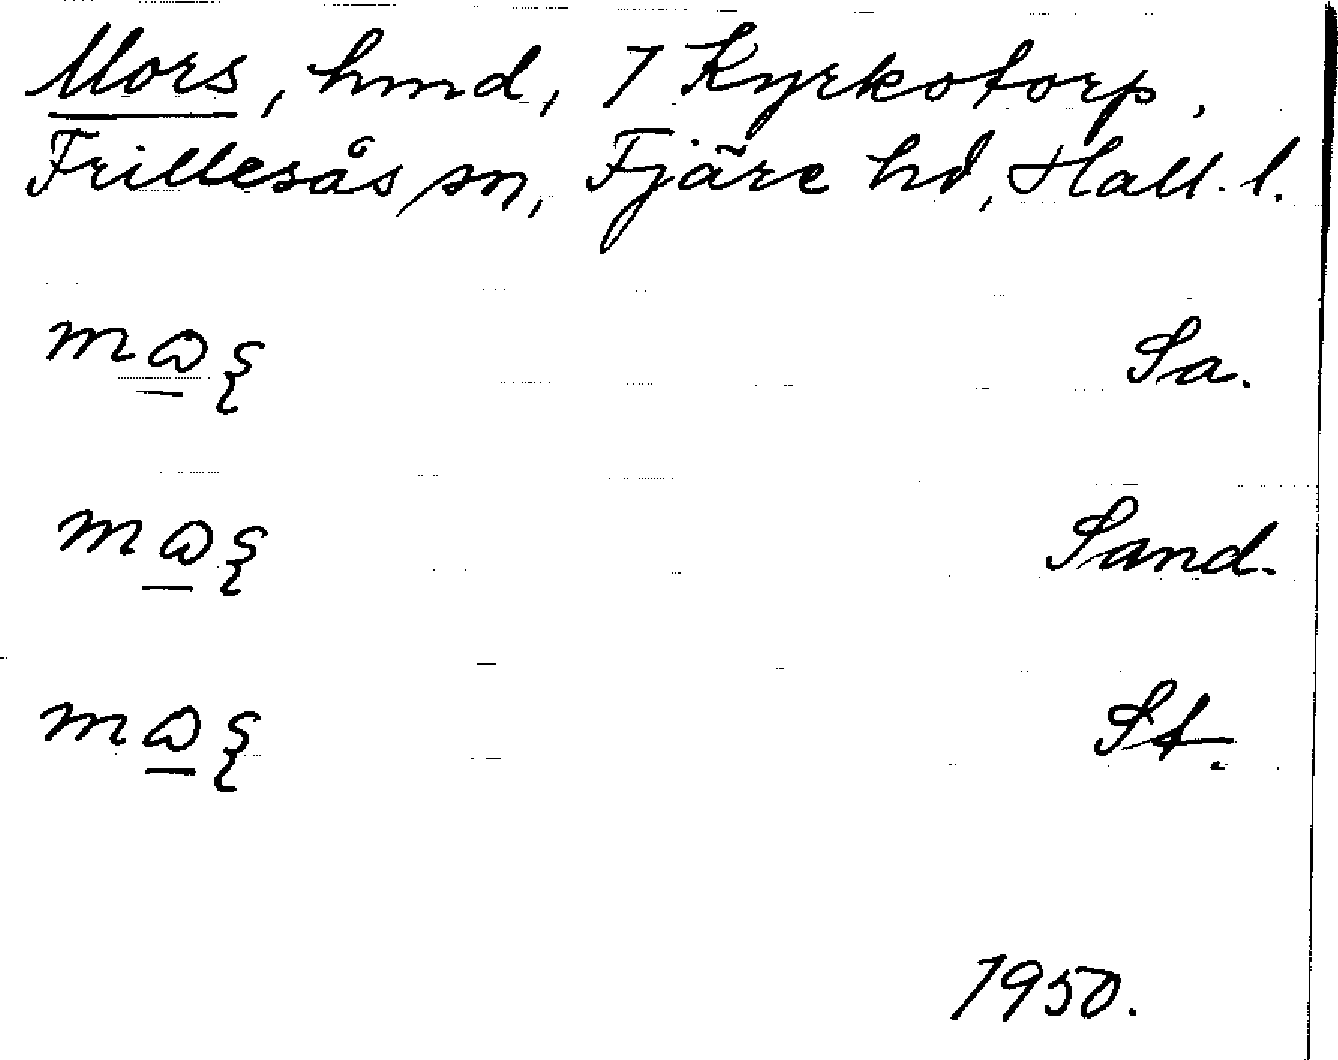 Mors, hmd, 7 Kyrkotorp,
Frillesås sn, Fjäre hd, Hall. l.
Sa.
Sand.
St.
1950.